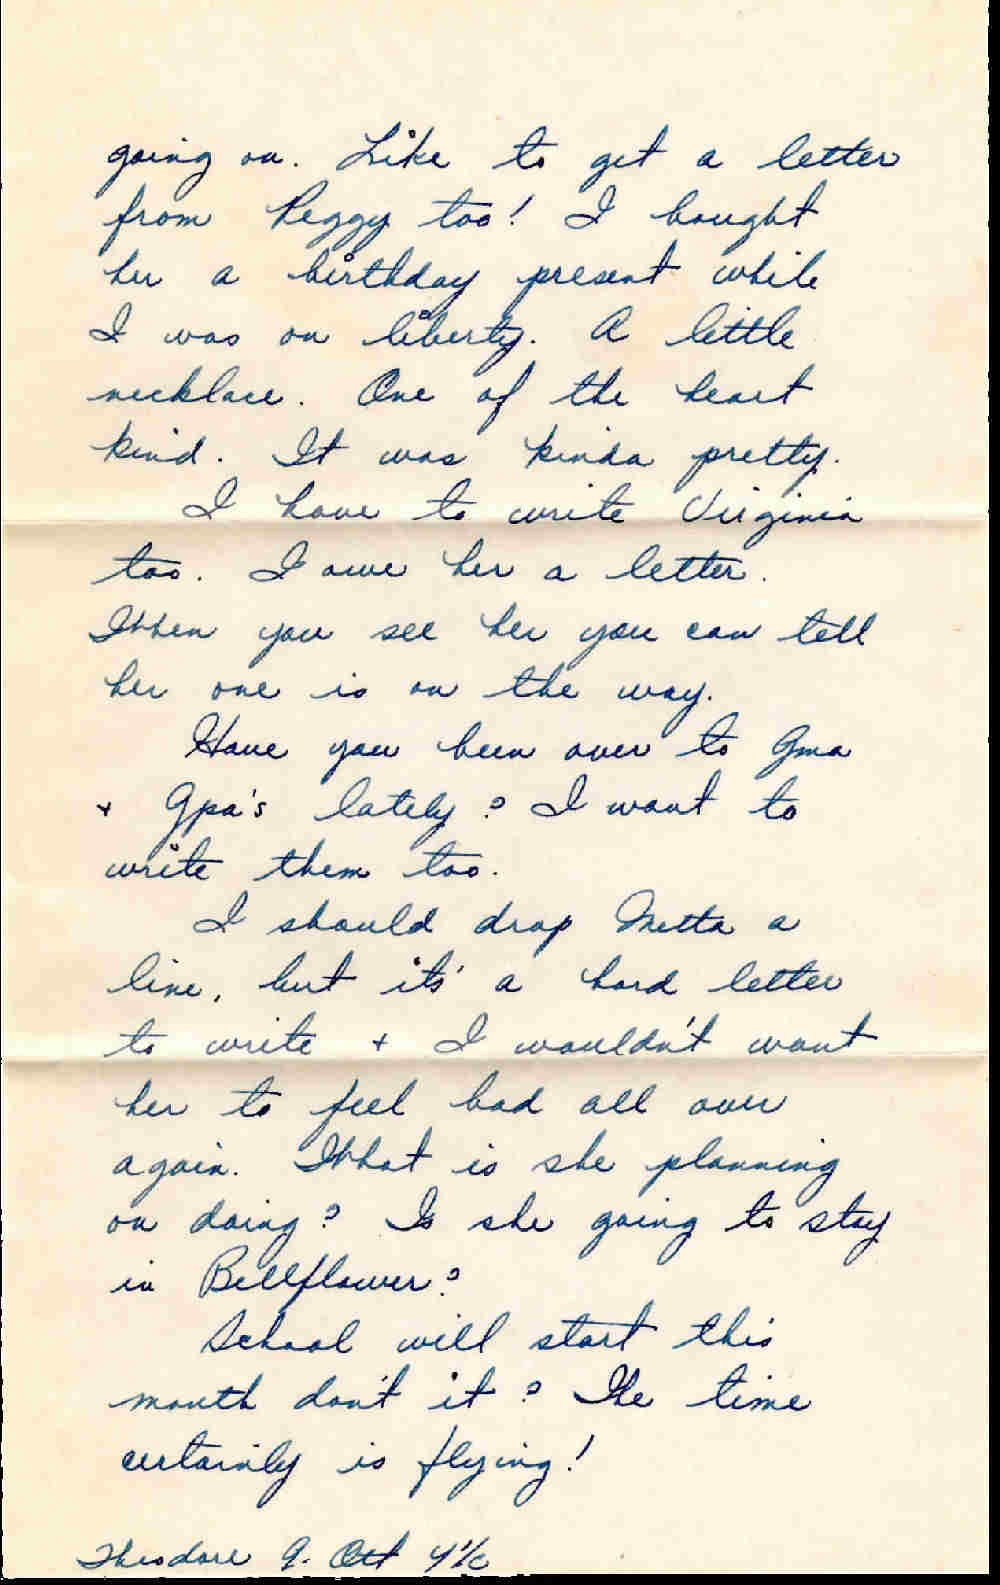 going on. Like to get a letter
from Peggy too! I bought
her a birthday present while
I was on liberty. A little
necklace. One of the heart
kind. It was kinda pretty.
I have to write Virginia
too. I owe her a letter.
When you see her you can tell
her one is on the way.
Have you been over to Gma
+ Gpa's lately? I want to
write them too.
I should drop Metta a
line, but it's a hard letter
to write + I wouldn't want
her to feel bad all over
again. What is she planning
on doing? Is she going to stay
in Bellflower?
School will start this
month don't it? The time
certainly is flying!
Theodore Ott